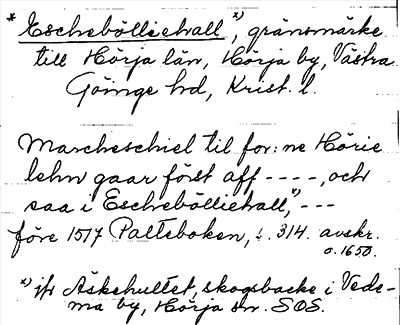 * Eschebölliehall, x) gränsmärke
till Hörja län, Hörja by, Västra
Göinge hd, Krist. l.
Marcheschiel til for: ne Hörie
lehn gaar först aff ----, och
saa i Eschebölliehall, x) ---
före 1517 Palteboken, s. 314. avskr.
o. 1650.
x) jfr Äskehultet, skogsbacke i Vede-
ma by, Hörja sn. SOS.